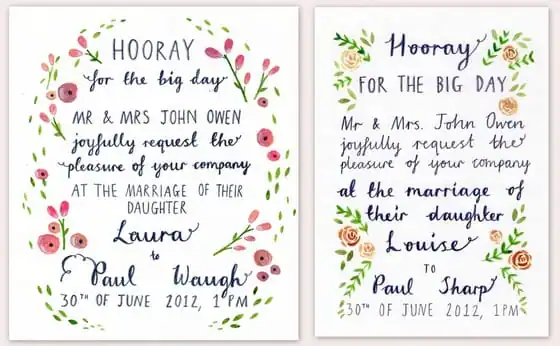 HOORAY
for the big day
MR & MRS JOHN OWEN
joyfully request the
pleasure of your company
AT THE MARRIAGE OF THEIR
DAUGHTER
Laura
to
Paul Waugh
30TH OF JUNE 2012, 1PM
Hooray
FOR THE BIG DAY
Mr & Mrs. John Owen
joyfully request the
pleasure of your company
at the marriage of
their daughter
Louise
TO
Paul Sharp
30TH OF JUNE 2012, 1PM